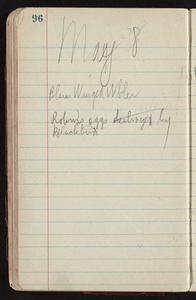 96
May 8
Blue Winged Wbler
Robin's eggs destroyed by
Blackbird